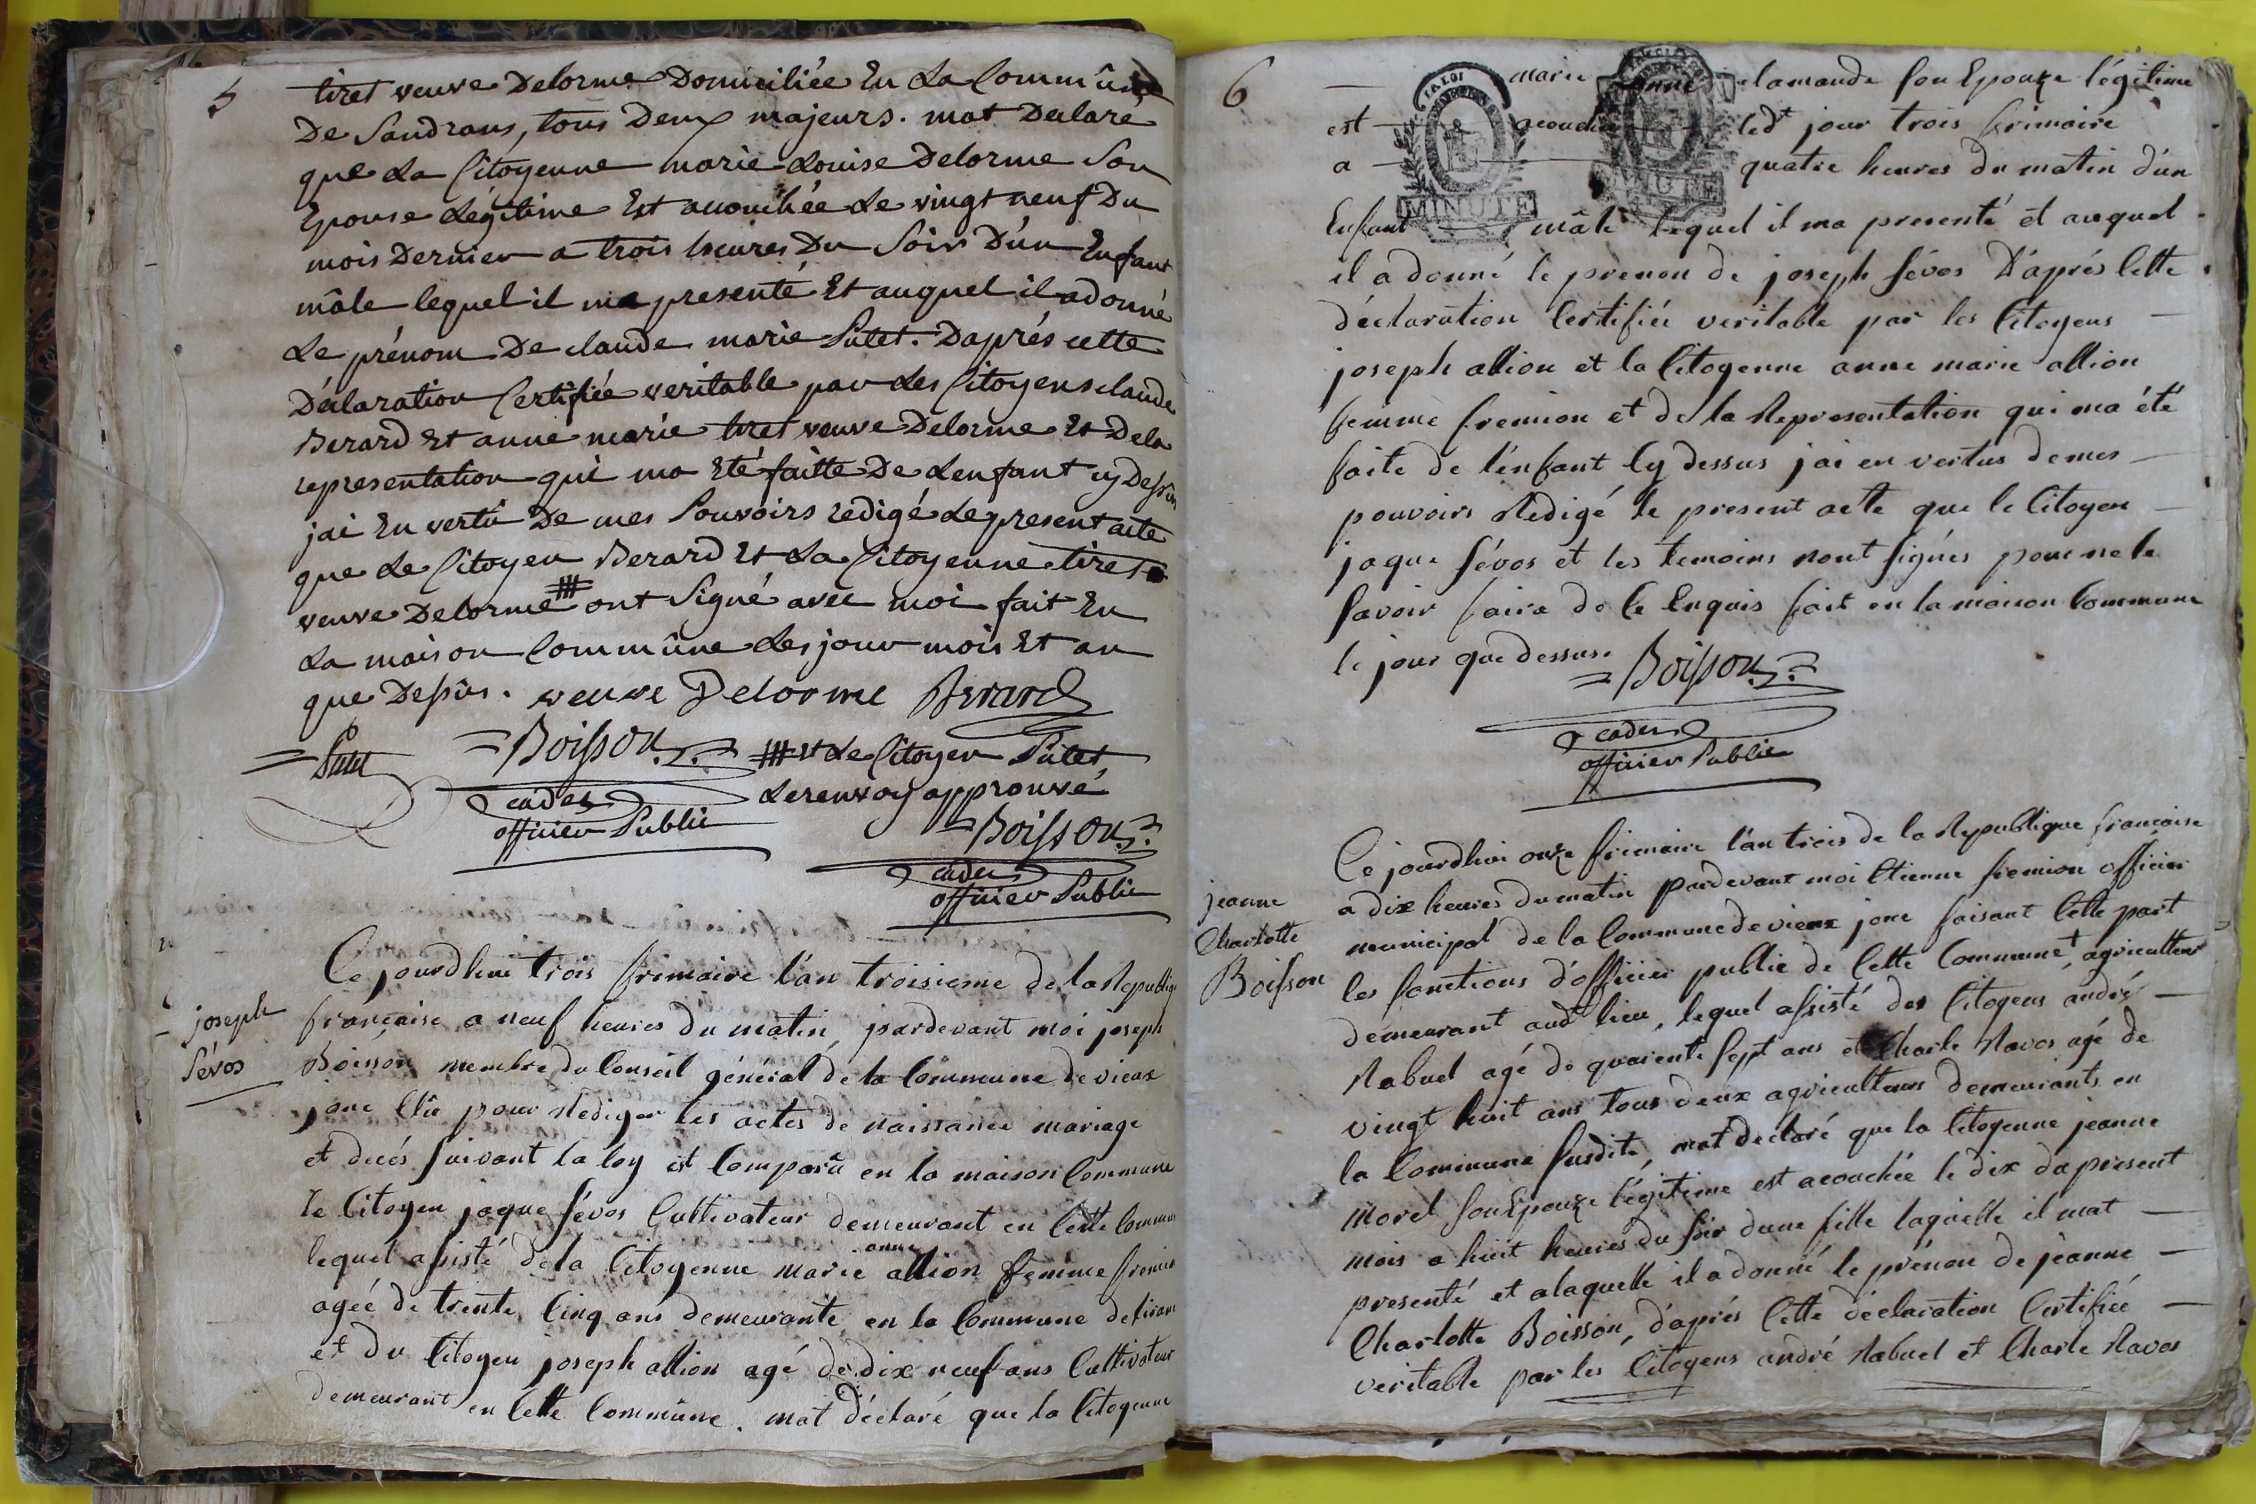 5
tiret veuve Delorme Domiciliée En La Commûne
De Sandrans, tous Deux majeurs. mat Declare
que La Citoyenne marie Louise Delorme Son
Epouse Légitime Est accouchée Le vingt neuf Du
mois Dernier a trois heures Du Soir D'un Enfant
mâle lequel il ma presenté Et auquel il a donné
Le prénom De claude marie Putet. D'aprés cette
Déclaration Certifiée veritable par Les Citoyens claude
Berard Et anne marie tiret veuve Delorme Et De la
representation qui ma Eté faitte De L'enfant cy Dessus
jai En vertû De mes Pouvoirs redigé Le present acte
que Le Citoyen Berard Et La Citoyenne tiret
veuve Delorme ⧻ ont Signé avec moi fait En
La maison Commûne Les jour mois Et an
que Dessus. veuve Delorme Berard
Putet Boisson ⧻ Et Le Citoyen Putet
cadet Le renvoy approuvé
officier Public Boisson
cadet
officier Public
joseph
févos
Ce jourdhui trois frimaire l'an troisieme de la Republique
française, a neuf heures du matin, pardevant moi joseph
Boisson membre du Conseil général de la Commune de vieux
jonc Elû pour Rediger les actes de naissance mariage
et decés suivant la loy est Comparû en la maison Commune
le Citoyen jaque févos Cultivateur demeurant en Cette Commune
lequel assisté de la Citoyenne marie anne allion femme fremion
agée de trente Cinq ans demeurante en la Commune de
et du Citoyen joseph allion agé de dix neuf ans Cultivateur
demeurant en Cette Commûne. mat déclaré que la Citoyenne
6
marie anne lamande son Epouze légitime
est acouchée ledt jour trois frimaire
a quatre heures du matin d'un
Enfant mâle lequel il ma presenté et auquel
il a donné le prenom de joseph févos D'aprés Cette
déclaration Certifiée veritable par les Citoyens
joseph allion et la Citoyenne anne marie allion
femme fremion et de la Representation qui ma été
faite de l'enfant Cy dessus jai en vertus de mes
pouvoirs Redigé le present acte que le Citoyen
jaque févos et les temoins nont signés pour ne le
savoir faire de Ce Enquis fait en la maison Commune
le jour que dessus. Boisson
cadet
officier Public
MINUTE
MINUTE
jeanne
Charlotte
Boisson
Ce jourdhui onze frimaire l'an trois de la Republique francaise
a dix heures du matin pardevant moi Etienne fremion officier
municipal de la Commune de vieux jonc faisant Cette part
les fonctions d'officier public de Cette Commune + agriculteur
demeurant audt lieu, lequel assisté des Citoyens andré
Rabuel agé de quarente sept ans et Charle Ravos agé de
vingt huit ans tous deux agriculteurs demeurants en
la Commune susdite, mat declaré que la Citoyenne jeanne
morel son Epouze légitime est acouchée le dix du present
mois a huit heures du soir d'une fille laquelle il mat
presenté et a laquelle il a donné le prénom de jeanne
Charlotte Boisson, d'aprés Cette déclaration Certifiée
veritable par les Citoyens andré Rabuel et Charle Ravos